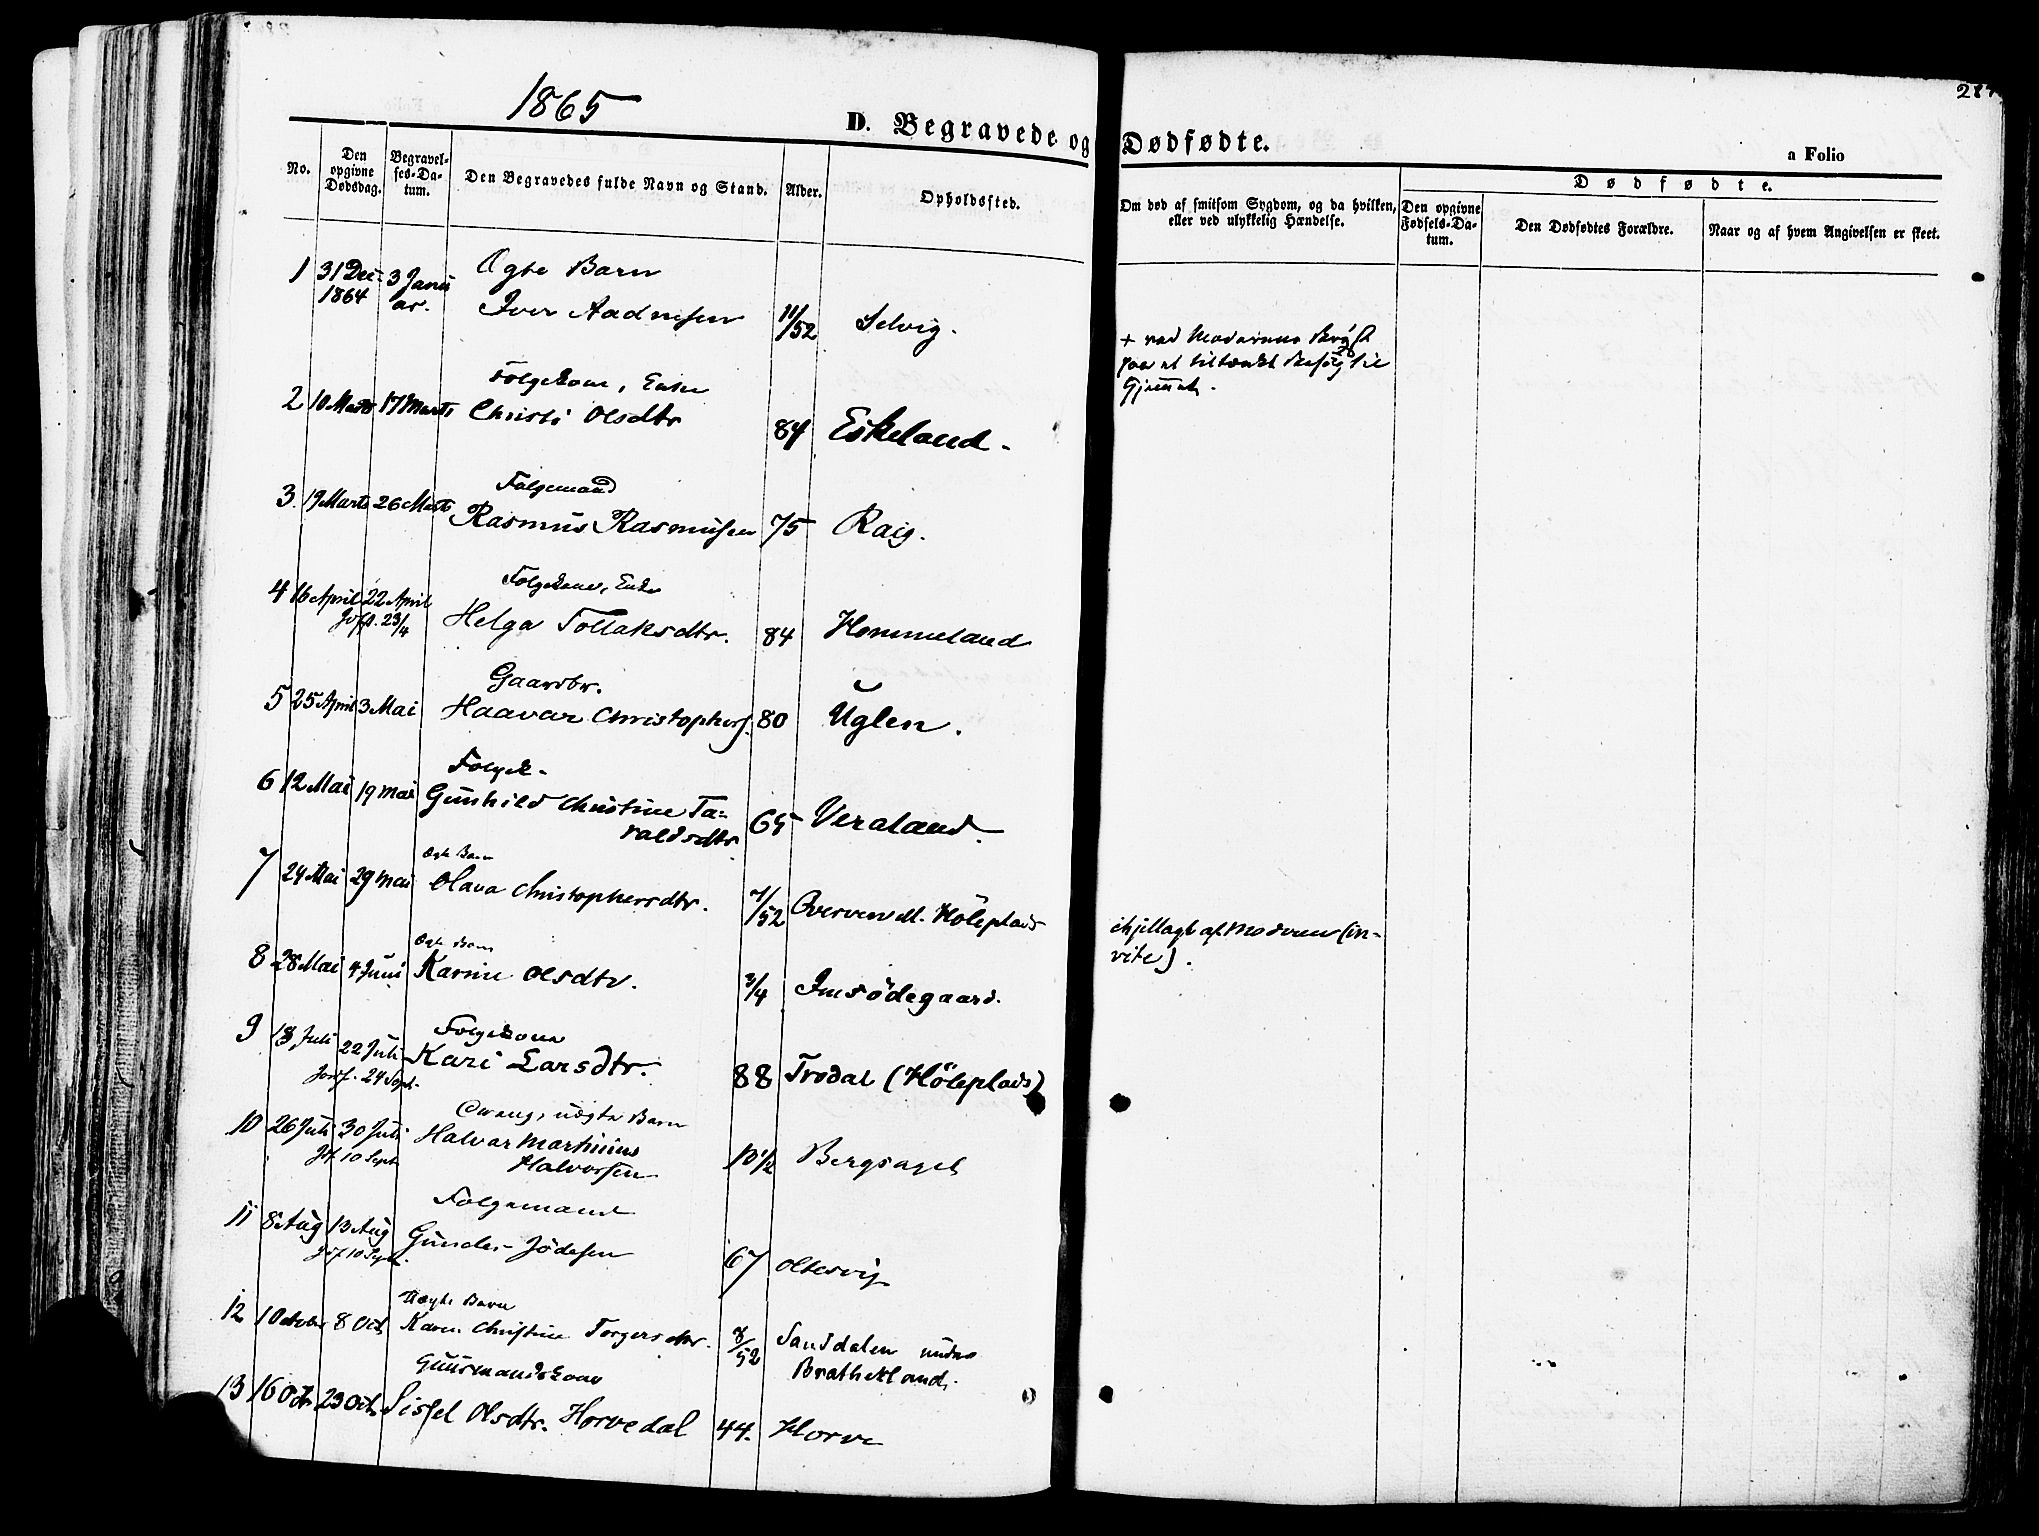 1865
D. Begravede og Dødfødte.
287
a Folio
No.
Den opgivne Dødsdag.
Begravelses-Datum.
Den Begravedes fulde Navn og Stand.
Alder.
Opholdssted.
Om død af smitsom Sygdom, og da hvilken, eller ved ulykkelig Hændelse.
Dødfødte.
Den opgivne Fødsels-Datum.
Den Dødfødtes Forældre.
Naar og af hvem Angivelsen er skeet.
1 31 Dec. 1864 3 Januar. Ægte Barn
Iver Aadnesen 11/52 Selvig.
+ ved Moderens Bryst
paa et tiltænkt Besøg til
Hjemmet.
2 10 Marts 17 Marts Folgekone, Enke
Christi Olsdtr 84 Eskeland.
3. 19 Marts 26 Marts Folgemand
Rasmus Rasmussen 75 Raig.
4 16 April 22 April Folgekone, Enke
Jdf. 23/4 Helga Tollaksdtr. 84 Hommeland
5 25 April 3 Mai Gaardbr.
Haavar Christophers. 80 Uglen.
6 12 Mai 19 Mai Folgek.
Gunhild Christine Ta-
raldsdtr. 65 Veraland.
7 24 Mai 29 Mai Ægte Barn
Olava Christophersdtr. 7/52 Høleplads
ihjellagt af Moderen (in-
vite).
8 28 Mai 4 Juni Ægte Barn
Karine Olsdtr. 3/4 Imsødegaard.
9 18 Juli 22 Juli Folgekone
Jordf. 24 Sept. Kari Larsdtr. 88 Trodal (Høleplads)
10 26 Juli 30 Juli uægte Barn
Jdf 10 Sept Halvar Martinius
Halvorsen 10 1/2 Bergsagel
11 8 Aug 13 Aug Folgemand
Jdf 10 Sept. Gunder Jödesen 67 Oltesvig
12 1 October 8 Oct Uægte Barn
Karen Christine Torgersdtr. 8/52 Sanddalen under
Brathetland.
13 16 Oct 23 Oct. Huusmandskone
Sissel Olsdtr. Horvedal 44. Horve